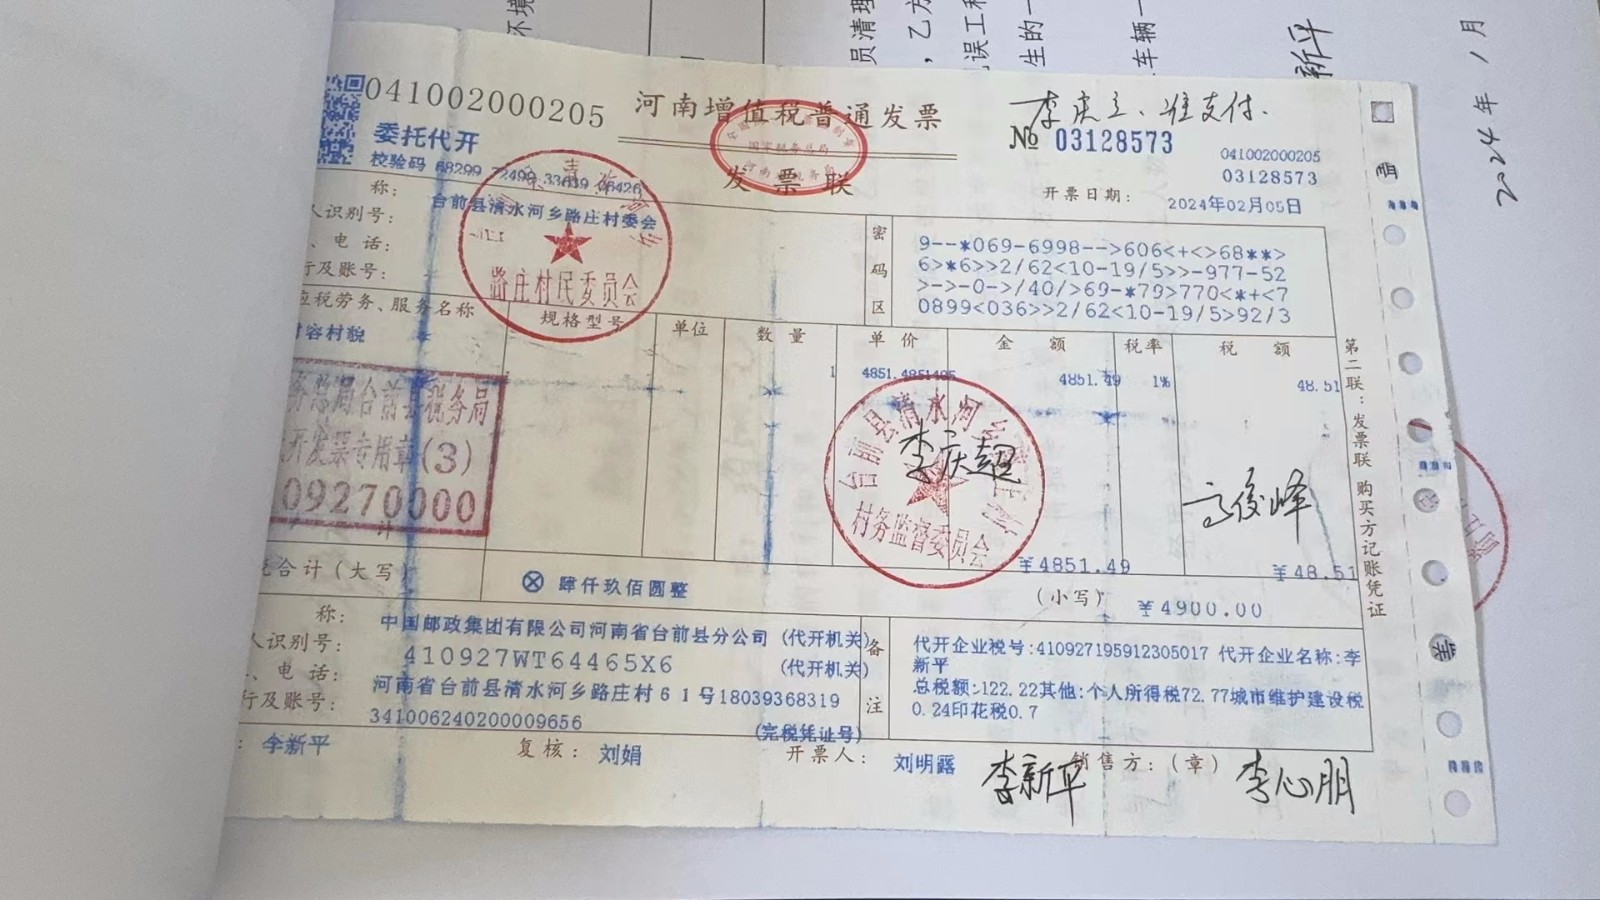 041002000205
河南增值税普通发票
李庆立、准支付.
委托代开
№ 03128573
041002000205
03128573
校验码 68299
发票联
开票日期: 2024年02月05日
国家税务总局
称: 台前县清水河乡路庄村委会
人识别号:
、电话:
行及账号:
路庄村民委员会
密码区
9--*069-6998-->606<+<>68**>
6>*6>>2/62<10-19/5>>-977-52
>->-0->/40/>69-*79>770<*+<7
0899<036>>2/62<10-19/5>92/3
应税劳务、服务名称 规格型号 单位 数量 单价 金额 税率 税额
村容村貌 1 4851.49 1% 48.51
务总局台前县税务局
开发票专用章(3)
09270000
台前县清水河乡
村务监督委员会
李庆超
计 ¥4851.49 ¥48.51
合计(大写) ⊗ 肆仟玖佰圆整 (小写) ¥4900.00
称: 中国邮政集团有限公司河南省台前县分公司 (代开机关)
人识别号: 410927WT64465X6 (代开机关)
、电话: 河南省台前县清水河乡路庄村61号18039368319
行及账号: 341006240200009656 (完税凭证号)
备注
代开企业税号:410927195912305017 代开企业名称:李
新平
总税额:122.22其他:个人所得税72.77城市维护建设税
0.24印花税0.7
: 李新平 复核: 刘娟 开票人: 刘明露 销售方:(章)
李新平
李心朋
第二联:发票联 购买方记账凭证
新平
2024年1月